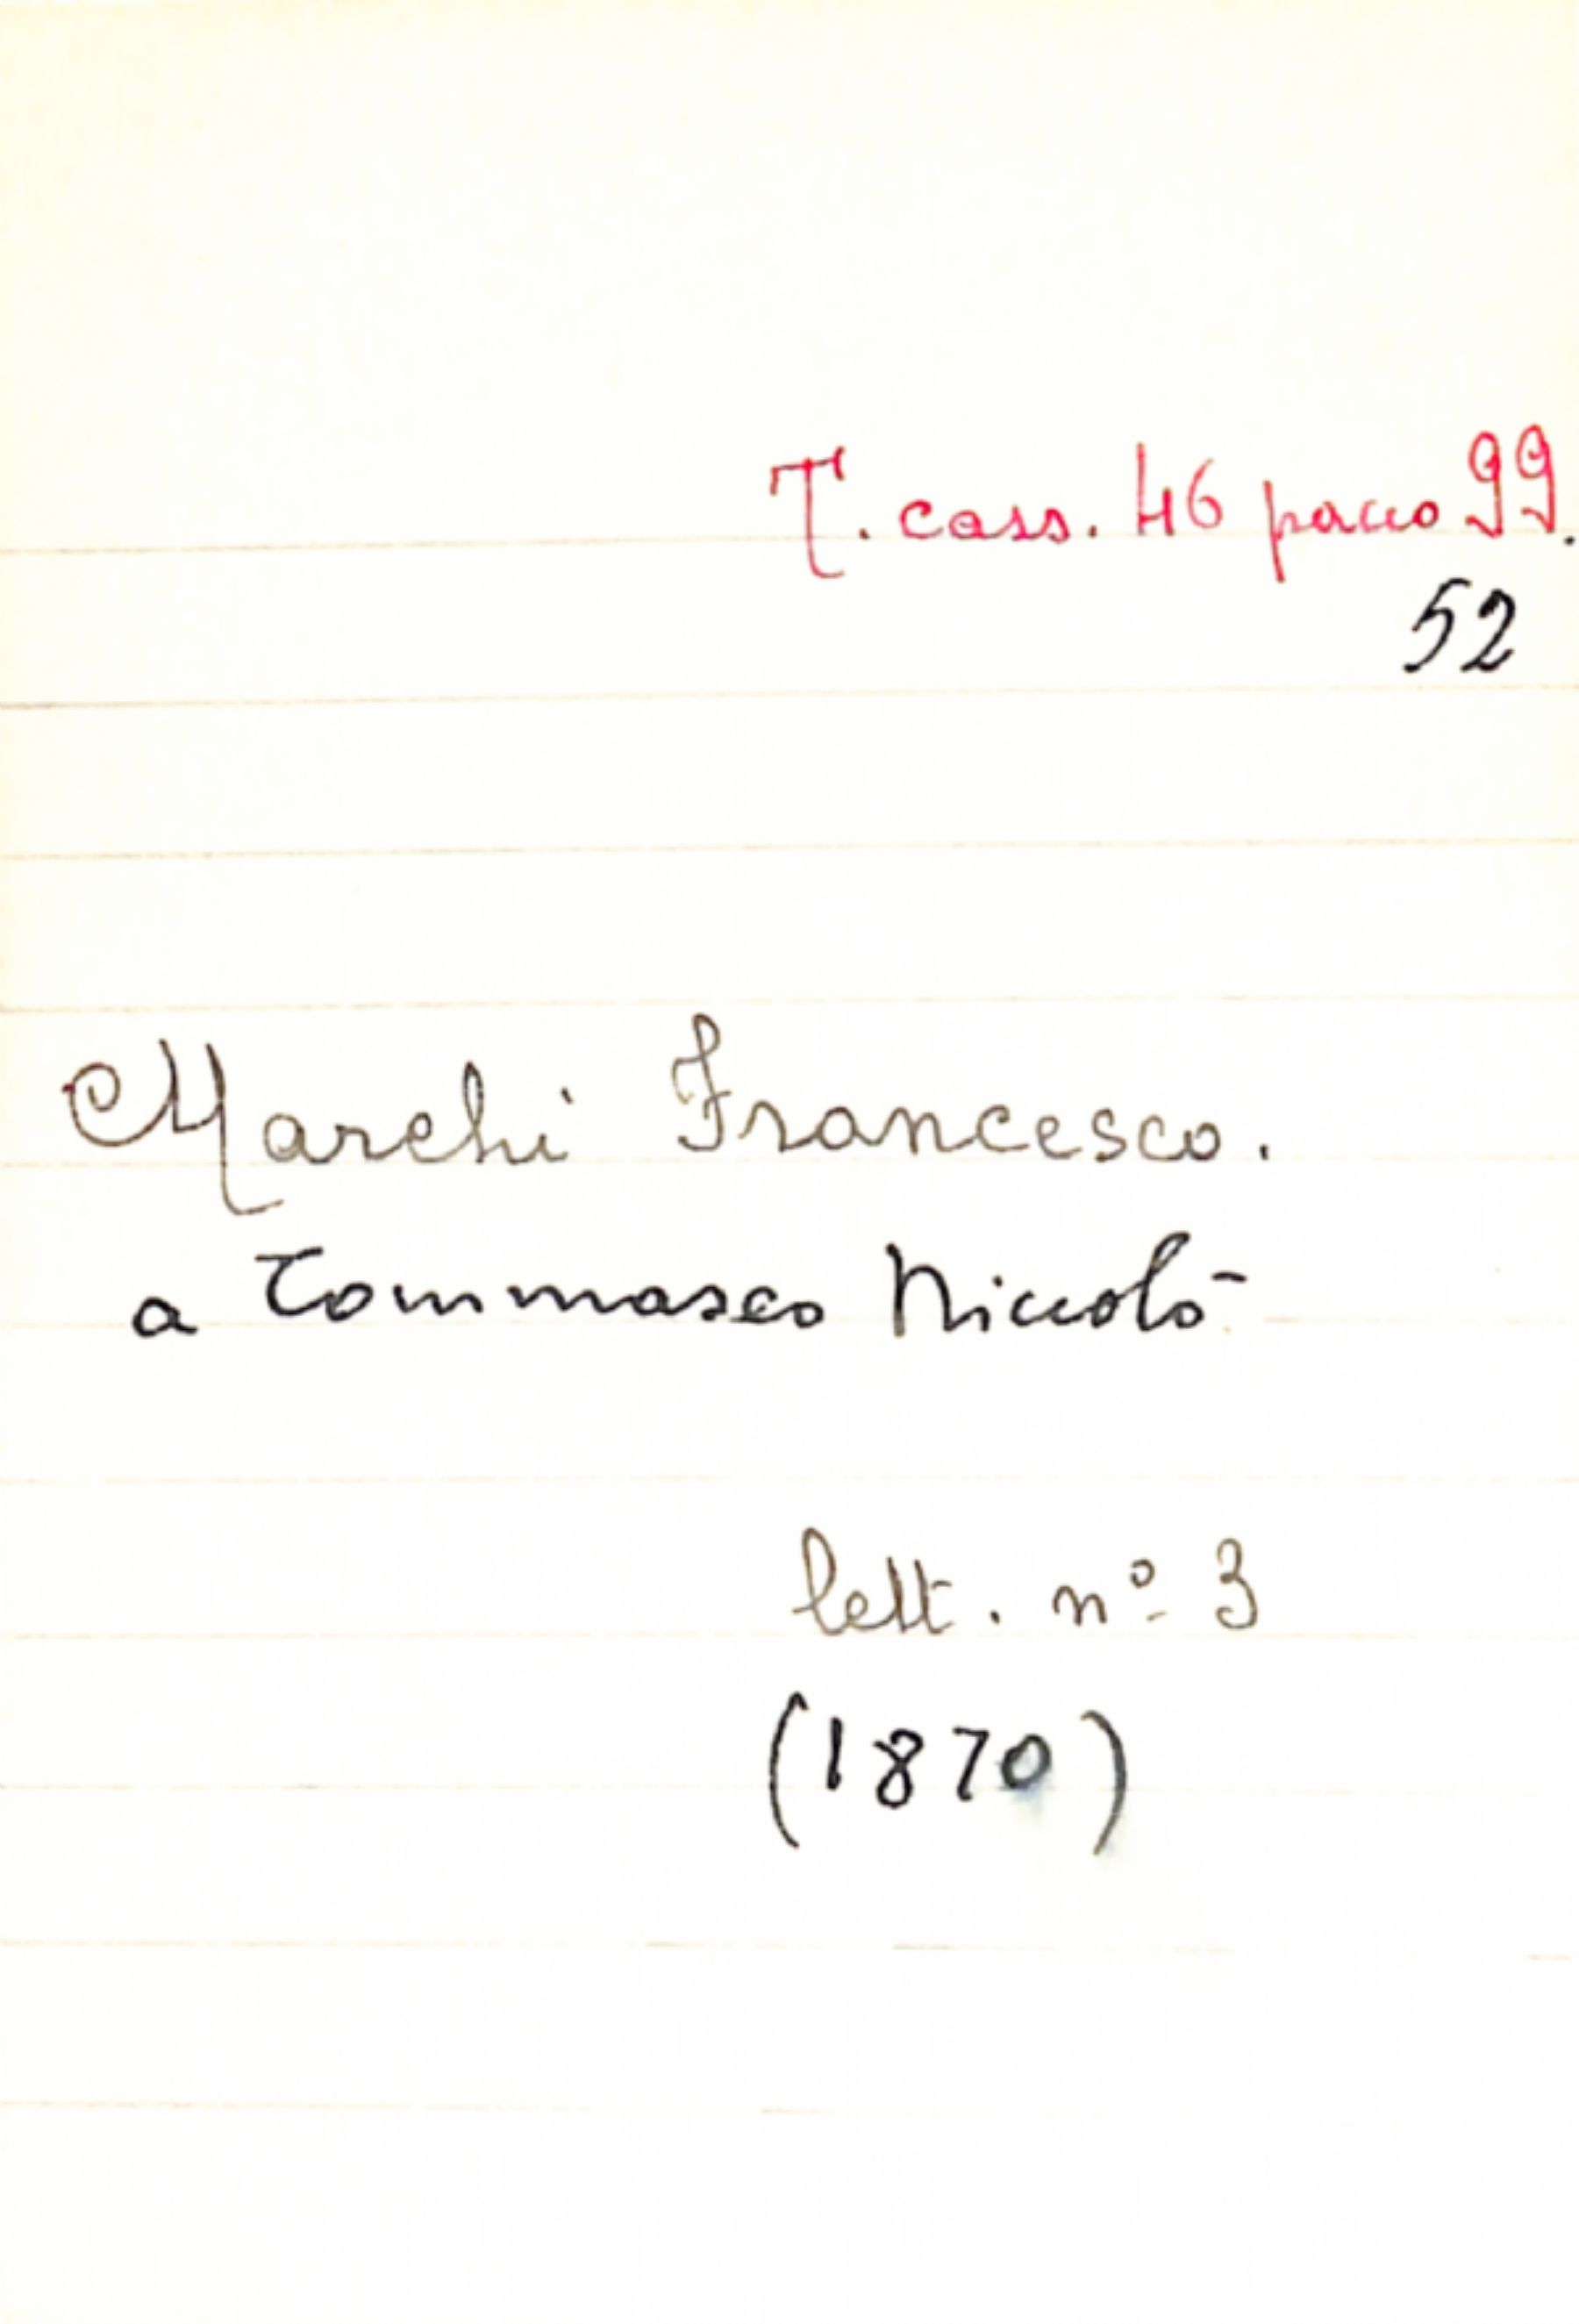 T. cass. 46 pacco 99.
52
Marchi Francesco.
a Tommaseo Niccolò
lett. nº 3
(1870)